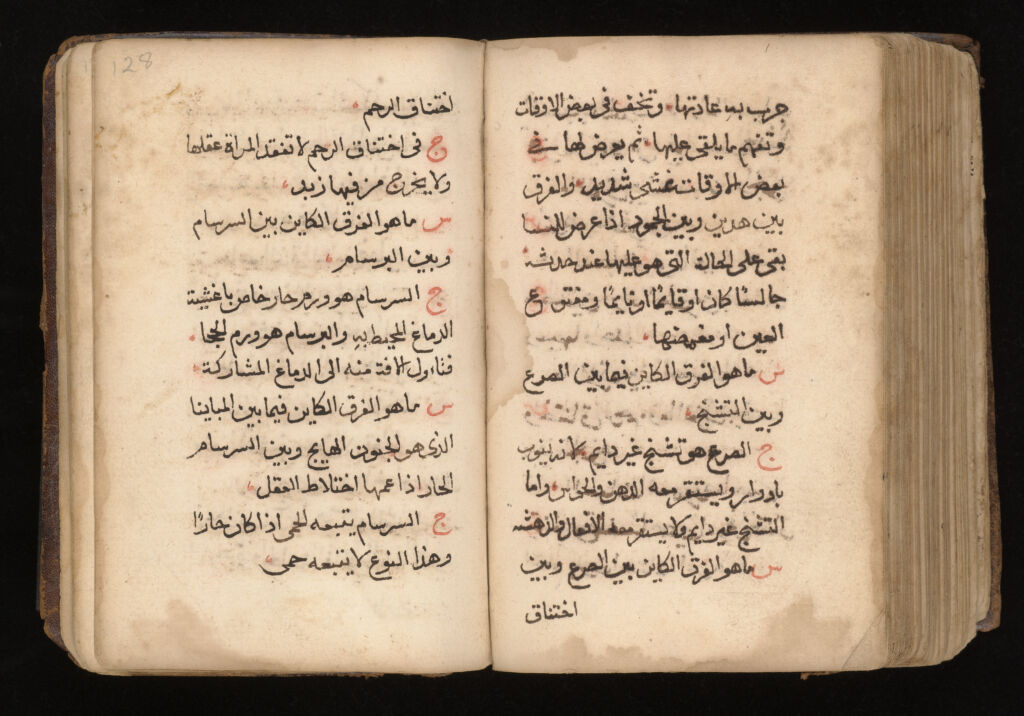 جرت به عادتها. وتخف في بعض الاوقات
وتفهم ما يلقى عليها. ثم يعرض لها في
بعض الاوقات غشى شديد. والفرق
بين هدين وبين الجمود اذا عرض
بقى على الحالة التى هو عليها عند حدثه
جالسًا كان او قايمًا او نايمًا ومفتوح
العين او مغمضها.
س ماهو الفرق الكاين فيما بين الصرع
وبين التشنج.
ج الصرع هو تشنج غير دايم. لانه ينوب
بادوار ويستقر معه الدهن والحواس. واما
التشنج غير دايم ولا يستقر معه الافعال
س ماهو الفرق الكاين بين الصرع وبين
اختناق
128
اختناق الرحم.
ج فى اختناق الرحم لا تفقد المراة عقلها
ولا يخرج من فيها زبد.
س ماهو الفرق الكاين بين السرسام
وبين البرسام.
ج السرسام هو ورم حار خاص باغشية
الدماغ المحيط به والبرسام هو ورم الحجا.
فتناول الافة منه الى الدماغ المشاركة.
س ماهو الفرق الكاين فيما بين المباينا
الذى هو الجنون الهايج وبين السرسام
الحار اذا عمها اختلاط العقل.
ج السرسام يتبعه الحمى اذا كان حارًا
وهذا النوع لا يتبعه حمى.